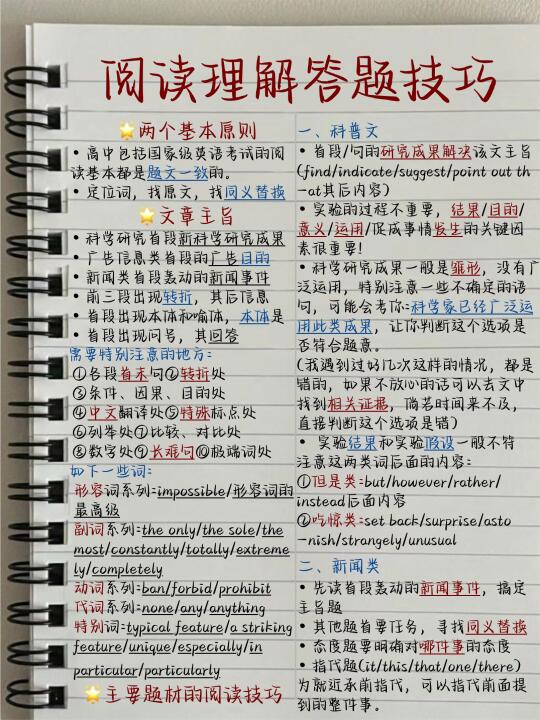 阅读理解答题技巧
🌟两个基本原则
• 高中包括国家级英语考试的阅
读基本都是题文一致的。
• 定位词，找原文，找同义替换
🌟文章主旨
• 科学研究首段新科学研究成果
• 广告信息类首段的广告目的
• 新闻类首段轰动的新闻事件
• 前三段出现转折，其后信息
• 首段出现本体和喻体，本体是
• 首段出现问号，其回答
需要特别注意的地方：
①各段首末句②转折处
③条件、因果、目的处
④中文翻译处⑤特殊标点处
⑥列举处⑦比较、对比处
⑧数字处⑨长难句⑩极端词处
如下一些词：
形容词系列:impossible/形容词的
最高级
副词系列:the only/the sole/the
most/constantly/totally/extreme
ly/completely
动词系列:ban/forbid/prohibit
代词系列:none/any/anything
特别词:typical feature/a striking
feature/unique/especially/in
particular/particularly
🌟主要题材的阅读技巧
一、科普文
• 首段/句的研究成果解决该文主旨
(find/indicate/suggest/point out th
-at其后内容)
• 实验的过程不重要，结果/目的/
意义/运用/促成事情发生的关键因
素很重要！
• 科学研究成果一般是雏形，没有广
泛运用，特别注意一些不确定的语
句，可能会考你:科学家已经广泛运
用此类成果，让你判断这个选项是
否符合题意。
(我遇到过好几次这样的情况，都是
错的，如果不放心的话可以去文中
找到相关证据，倘若时间来不及，
直接判断这个选项是错)
• 实验结果和实验假设一般不符
注意这两类词后面的内容：
①但是类:but/however/rather/
instead后面内容
②吃惊类:set back/surprise/asto
-nish/strangely/unusual
二、新闻类
• 先读首段轰动的新闻事件，搞定
主旨题
• 其他题首要任务，寻找同义替换
• 态度题要明确对哪件事的态度
• 指代题(it/this/that/one/there)
为就近承前指代，可以指代前面提
到的整件事。